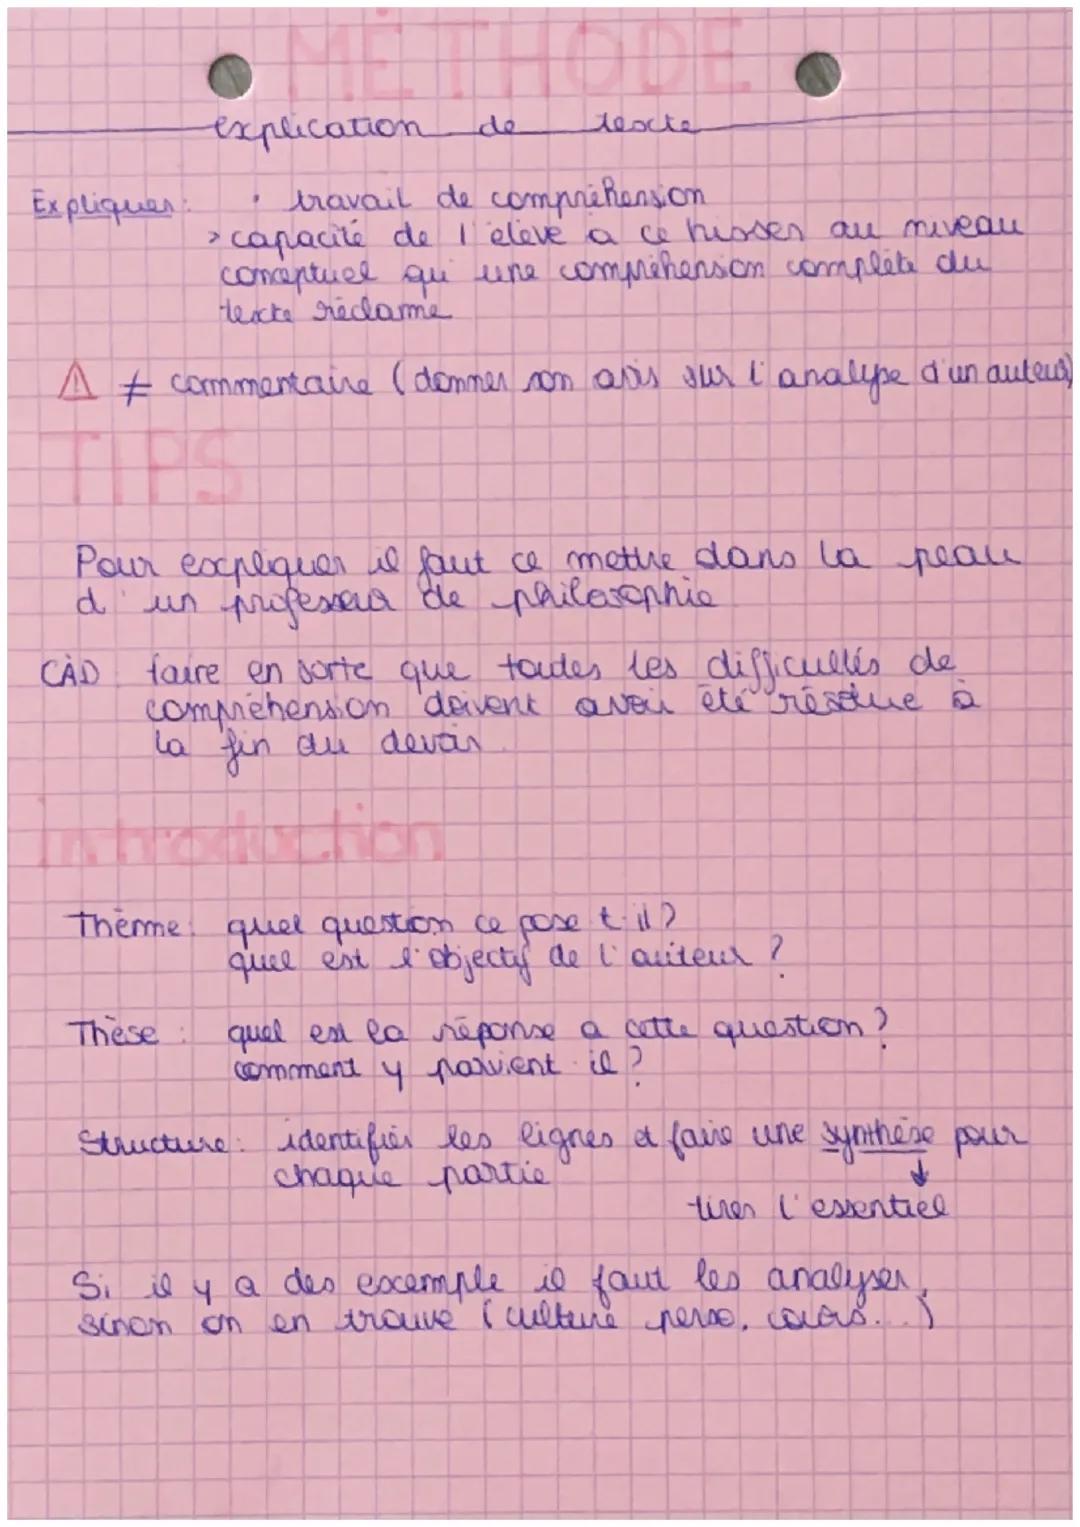 MÉTHODE
explication de texte
Expliquer : • travail de compréhension
> capacité de l'élève a ce hisser au niveau
conceptuel qu'une compréhension complète du
texte réclame
⚠ ≠ commentaire (donner son avis sur l'analyse d'un auteur)
TIPS
Pour expliquer il faut ce mettre dans la peau
d'un professeur de philosophie
CÀD faire en sorte que toutes les difficultés de
compréhension doivent avoir été résolue à
la fin du devoir.
Introduction
Thème : quel question ce pose t-il ?
quel est l'objectif de l'auteur ?
Thèse : quel est la réponse a cette question ?
comment y parvient il ?
Structure : identifier les lignes et faire une synthèse pour
chaque partie
↓
tirer l'essentiel
Si il y a des exemple il faut les analyser,
sinon on en trouve (culture perso, cours...)